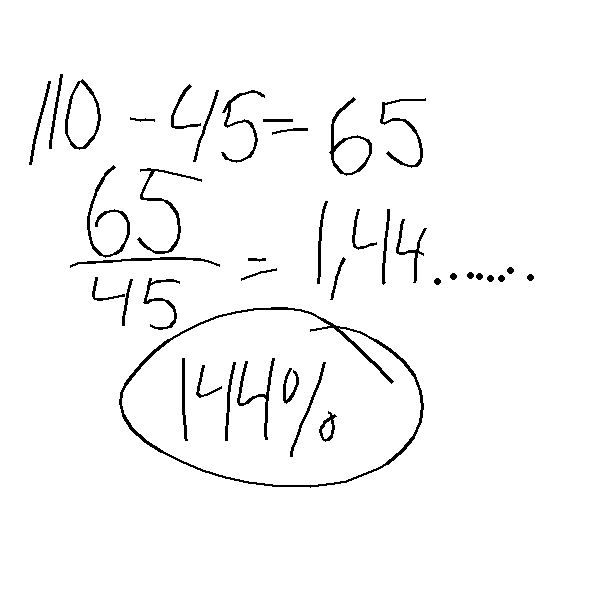 110 - 45 = 65
65/45 = 1,44.......
144%